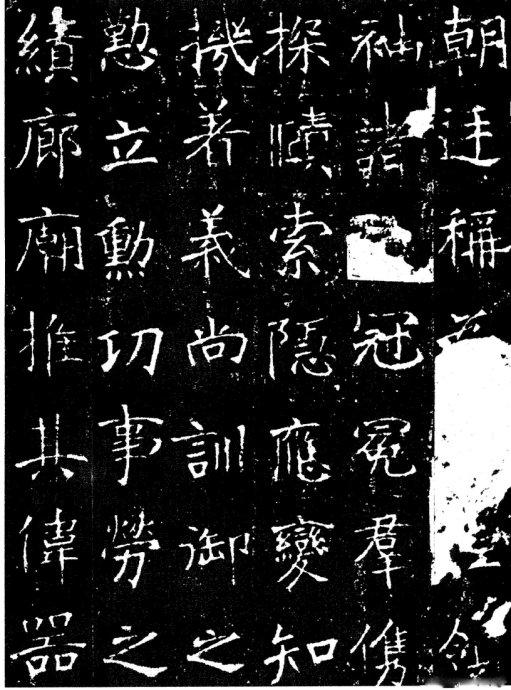 朝廷稱領
袖諸冠冕羣儁
探賾索隱應變知
機著義尚訓御之
懃立勳功事勞之
績廊廟推其偉器